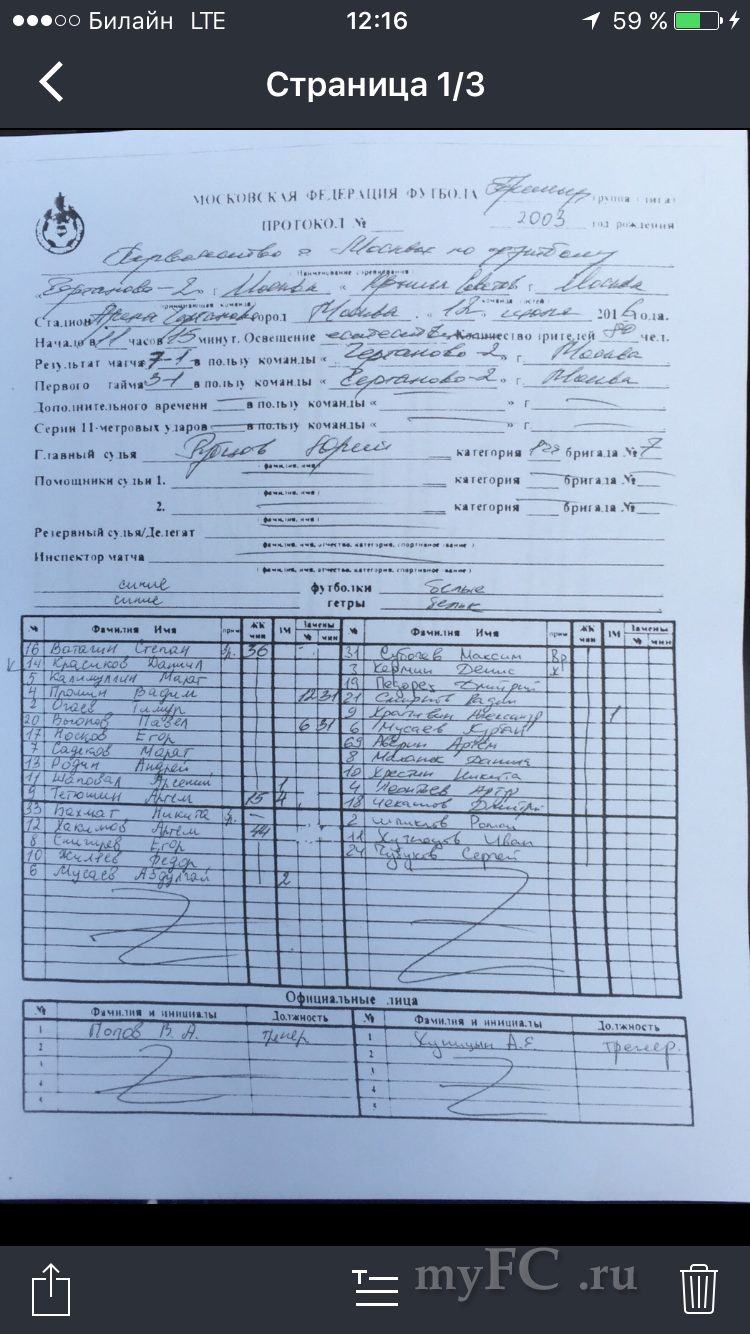 Билайн LTE 12:16 59 %
Страница 1/3
МОСКОВСКАЯ ФЕДЕРАЦИЯ ФУТБОЛА группа (лига)
ПРОТОКОЛ № 2003 год рождения
Первенство г. Москвы по футболу
(Наименование соревнования)
"Чертаново-2" г. Москва « Крылья Советов г. Москва
принимающая команда команда гостей
Стадион Арена Чертаново город Москва. " 12 " июня 2016 года.
Начало в 11 часов 15 минут. Освещение естеств. Количество зрителей 80 чел.
Результат матча 7-1 в пользу команды « Чертаново-2 » г. Москва
Первого тайма 3-1 в пользу команды « Чертаново-2 » г. Москва
Дополнительного времени в пользу команды « » г
Серии 11-метровых ударов в пользу команды « » г
Главный судья Юрий категория бригада № 7
( фамилия, имя )
Помощники судьи 1. категория бригада №
( фамилия, имя )
2. категория бригада №
( фамилия, имя )
Резервный судья/Делегат
( фамилия, имя, отчество, категория, спортивное звание )
Инспектор матча
( фамилия, имя, отчество, категория, спортивное звание )
синие футболки белые
синие гетры белые
№ Фамилия Имя прим ЖК мин ЗМ Замены № мин № Фамилия Имя прим ЖК мин ЗМ Замены № мин
16 Ватагин Степан вр. 36 31 Максим Вр
V 14 Красиков Даниил 3 Кермин Денис К
5 Калимуллин Марат 19 Дмитрий
4 Прошин Вадим 12 31 21 Смирнов Вадим
2 Огаев Тимур 9 Александр 1
20 Павел 6 31 6 Мусаев
17 Носков Егор 69 Аверин Артём
7 Садеков Марат 8 Данила
13 Родин Андрей 10 Хрестин Никита
11 Шаповал Арсений 1 4 Леонтьев Артур
9 Тетюшин Артем 15 4 18 Чекашов Дмитрий
33 Вахмат Никита 2 Роман
12 Хакимов Артём 44 11 Кузнецов Иван
8 Снигирев Егор 24 Чубуков Сергей
10 Жиляев Федор
6 Мусаев Абдулгай 2
Официальные лица
№ Фамилия и инициалы Должность № Фамилия и инициалы Должность
1 Попов В. А. тренер 1 А.Я тренер.
2 2
3 3
4 4
5 5
myFC .ru